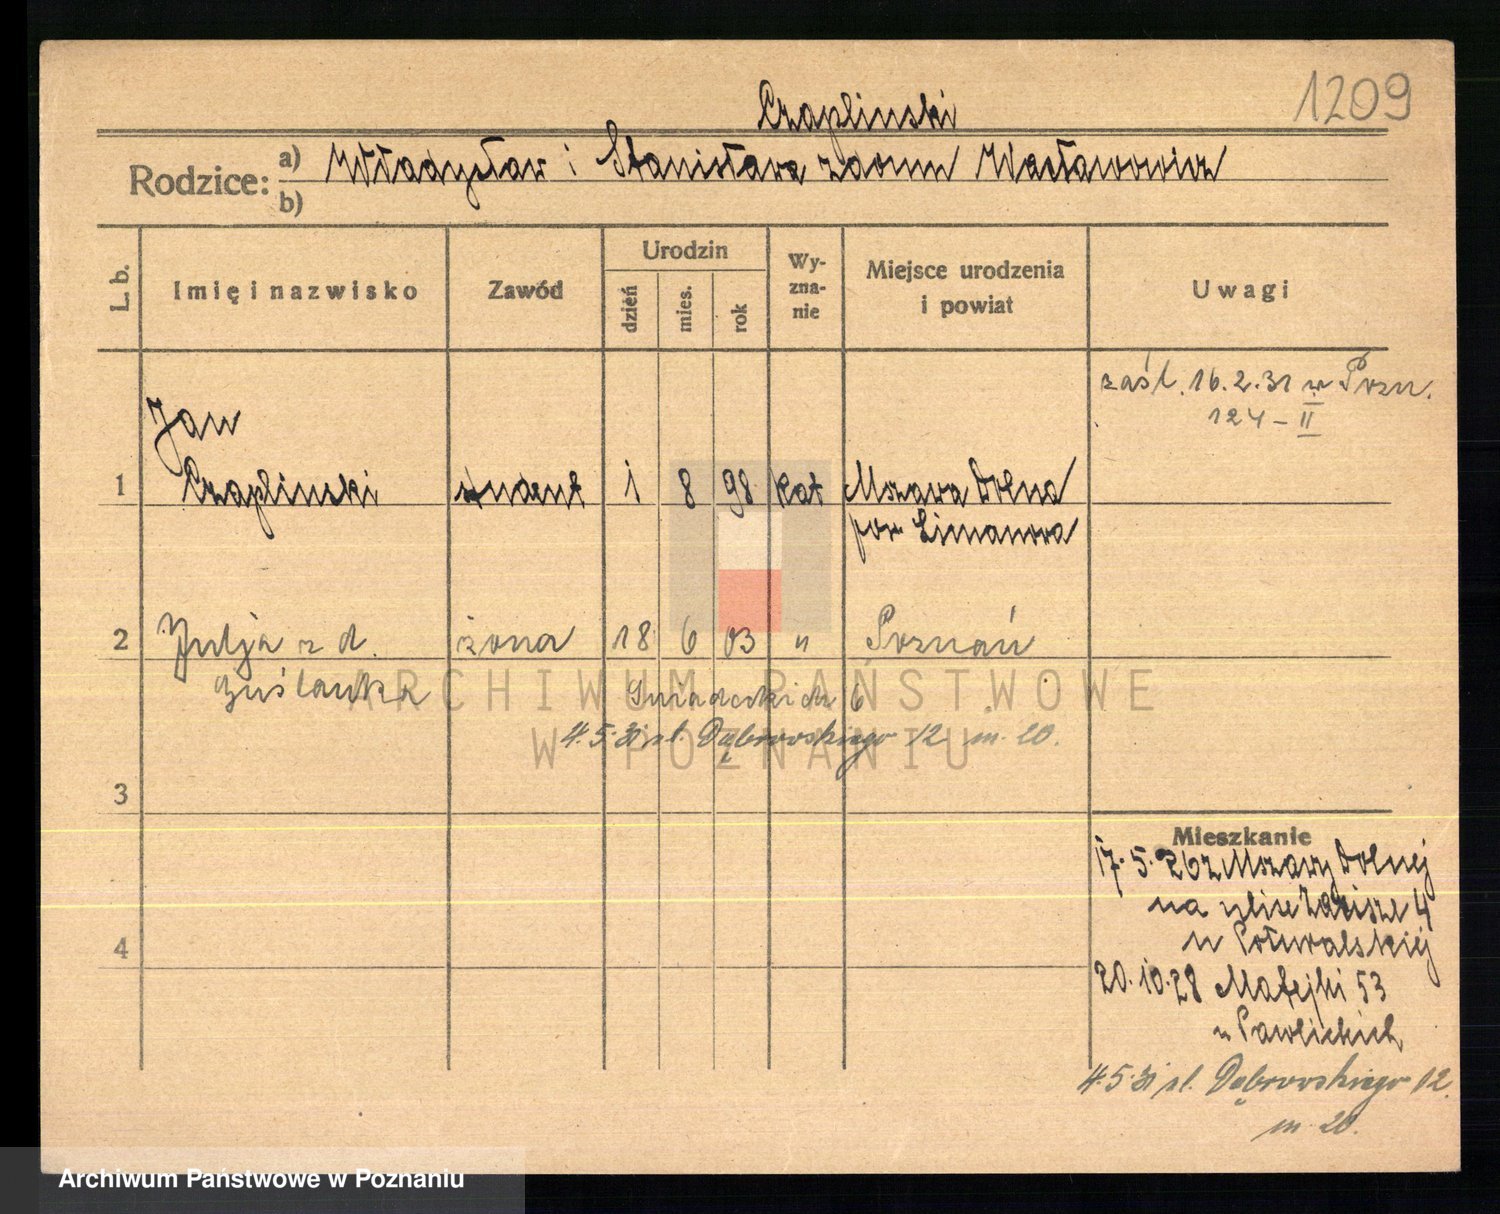 1209
Czaplinski
Rodzice: a) Władysław i Stanisława z domu Wacławowicz
b)
L. b.
Imię i nazwisko
Zawód
Urodzin
dzień
mies.
rok
Wy-
zna-
nie
Miejsce urodzenia
i powiat
Uwagi
zaśl. 16.2.31 w Pozn.
124 – II
1 Jan
Czaplinski student 1 8 98 kat Mszana Dolna
pow Limanowa
2 Julja z d. żona 18 6 03 " Poznań
Śniadeckich 6
4.5.31 ul. Dąbrowskiego 12 m. 20.
3
4
Mieszkanie
17.5.26 z Mszany Dolnej
na ulice Zacisze 4
u
20.10.28 Matejki 53
u Pawlickich
4.5.31 ul. Dąbrowskiego 12.
m. 20.
ARCHIWUM PAŃSTWOWE
W POZNANIU
Archiwum Państwowe w Poznaniu